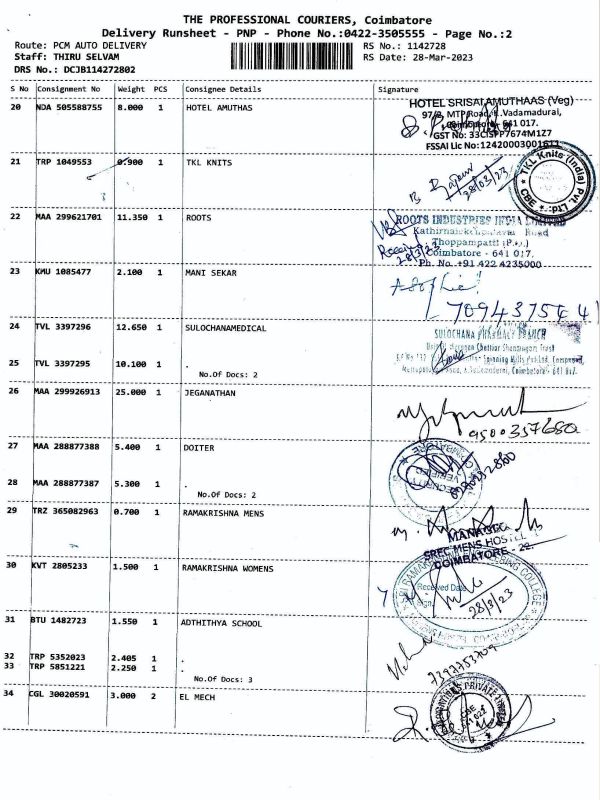 THE PROFESSIONAL COURIERS, Coimbatore
Delivery Runsheet - PNP - Phone No.:0422-3505555 - Page No.:2
Route: PCM AUTO DELIVERY RS No.: 1142728
Staff: THIRU SELVAM RS Date: 28-Mar-2023
DRS No.: DCJB114272802
S No Consignment No Weight PCS Consignee Details Signature
20 NDA 505588755 8.000 1 HOTEL AMUTHAS
HOTEL SRISAI AMUTHAAS (Veg)
97/2, MTP Road, K.Vadamadurai,
Coimbatore - 641 017.
GST No: 33CISPP7674M1Z7
FSSAI Lic No:12420003001611
21 TRP 1049553 0.900 1 TKL KNITS
28/03/23
TKL Knits (India) Pvt. Ltd. CBE
22 MAA 299621701 11.350 1 ROOTS
ROOTS INDUSTRIES INDIA LIMITED
Road
Thoppampatti (P.o.)
Coimbatore - 641 017.
Ph. No. +91 422 4235000
Received
28/3/23
23 KMU 1085477 2.100 1 MANI SEKAR
24 TVL 3397296 12.650 1 SULOCHANAMEDICAL
SULOCHANA PHARMACY BRANCH
25 TVL 3397295 10.100 1 .
No.Of Docs: 2
26 MAA 299926913 25.000 1 JEGANATHAN
9500357680
27 MAA 288877388 5.400 1 DOITER
COIMBATORE
SECURITY
28 MAA 288877387 5.300 1 .
No.Of Docs: 2
29 TRZ 365082963 0.700 1 RAMAKRISHNA MENS
MANAGER
SREC MENS HOSTEL
COIMBATORE - 22.
30 KVT 2805233 1.500 1 RAMAKRISHNA WOMENS
Received Date
Sign
28/3/23
31 BTU 1482723 1.550 1 ADTHITHYA SCHOOL
32 TRP 5352023 2.405 1 .
33 TRP 5851221 2.250 1 .
No.Of Docs: 3
34 CGL 30020591 3.000 2 EL MECH